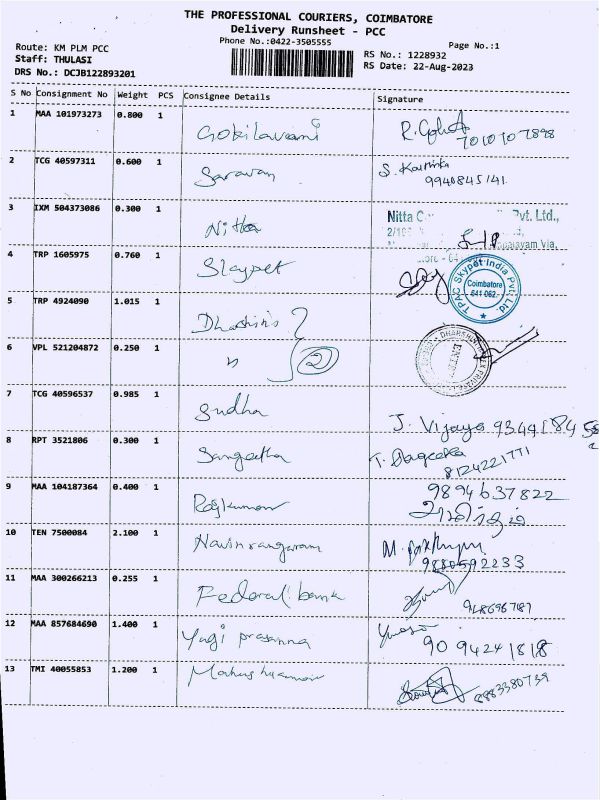 THE PROFESSIONAL COURIERS, COIMBATORE
Delivery Runsheet - PCC
Phone No.:0422-3505555
Page No.:1
Route: KM PLM PCC
Staff: THULASI
DRS No.: DCJB122893201
RS No.: 1228932
RS Date: 22-Aug-2023
S No Consignment No Weight PCS Consignee Details Signature
1 MAA 101973273 0.800 1 Gokilavani R. 7010107898
2 TCG 40597311 0.600 1 Saravan S. Karthika
9940845141
3 IXM 504373086 0.300 1 Nitta Nitta Pvt. Ltd.,
4 TRP 1605975 0.760 1 Skypet TPAC Skypet India Pvt. Ltd Coimbatore 641 062
5 TRP 4924090 1.015 1 Dharshini's
6 VPL 521204872 0.250 1 " 2
7 TCG 40596537 0.985 1 Sudha J. Vijaya
8 RPT 3521806 0.300 1 Sangeetha T.
8124221771
9 MAA 104187364 0.400 1 Rajkumar 9894637822
10 TEN 7500084 2.100 1 Navinrangaram M.
9880592233
11 MAA 300266213 0.255 1 Federal bank
12 MAA 857684690 1.400 1 Yagi prasanna
9094241818
13 TMI 40055853 1.200 1 8883380739